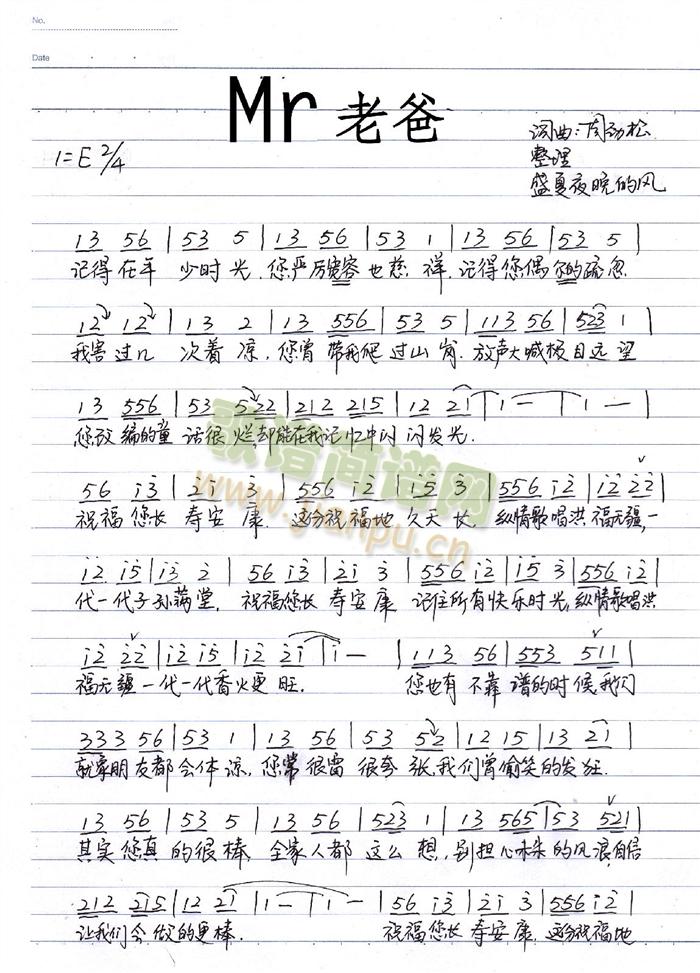 No.
Date
Mr 老爸
词曲:周劲松
1=E 2/4
整理
盛夏夜晚的风
13 56 | 53 5 | 13 56 | 53 1 | 13 56 | 53 5 |
记得在年 少时光, 您严厉宽容也慈祥, 记得您偶尔的疏忽
12 12 | 13 2 | 13 556 | 53 5 | 113 56 | 523 1 |
我害过几 次着凉, 您曾带我爬过山岗, 放声大喊极目远望
13 556 | 53 522 | 212 215 | 12 21 | 1 — | 1 — |
您改编的童话很烂,却能在我记忆中闪闪发光.
歌谱简谱网
www.jianpu.cn
56 i3 | 2i 3 | 556 i2 | i5 3 | 556 i2 | i2 22 |
祝福您长寿安康, 这份祝福地久天长, 纵情歌唱洪福无疆,一
i2 i5 | i3 2 | 56 i3 | 2i 3 | 556 i2 | i5 3 | 556 i2 |
代一代子孙满堂, 祝福您长寿安康 记住所有快乐时光,纵情歌唱洪
i2 22 | i2 i5 | i2 2i | i — | 113 56 | 553 511 |
福无疆一代一代香火更旺. 您也有不靠谱的时候,我们
333 56 | 53 1 | 13 56 | 53 52 | 12 15 | 13 21 |
就象朋友都会体谅, 您常很雷很夸张,我们曾偷笑的发狂.
13 56 | 53 5 | 13 56 | 523 1 | 13 565 | 53 521 |
其实您真的很棒 全家人都这么想, 别担心未来的风浪,自信
212 215 | 12 21 | 1 — | 1 — | 56 i3 | 2i 3 | 556 i2 |
让我们会做的更棒. 祝福您长寿安康, 这份祝福地